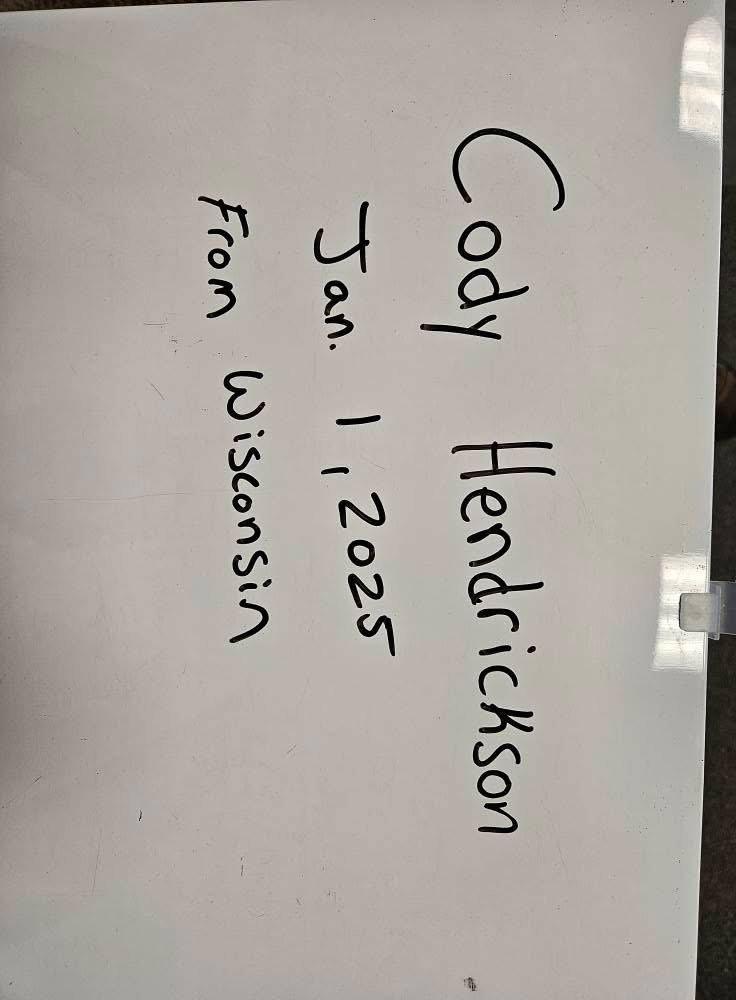 Cody Hendrickson
Jan. 1, 2025
From Wisconsin